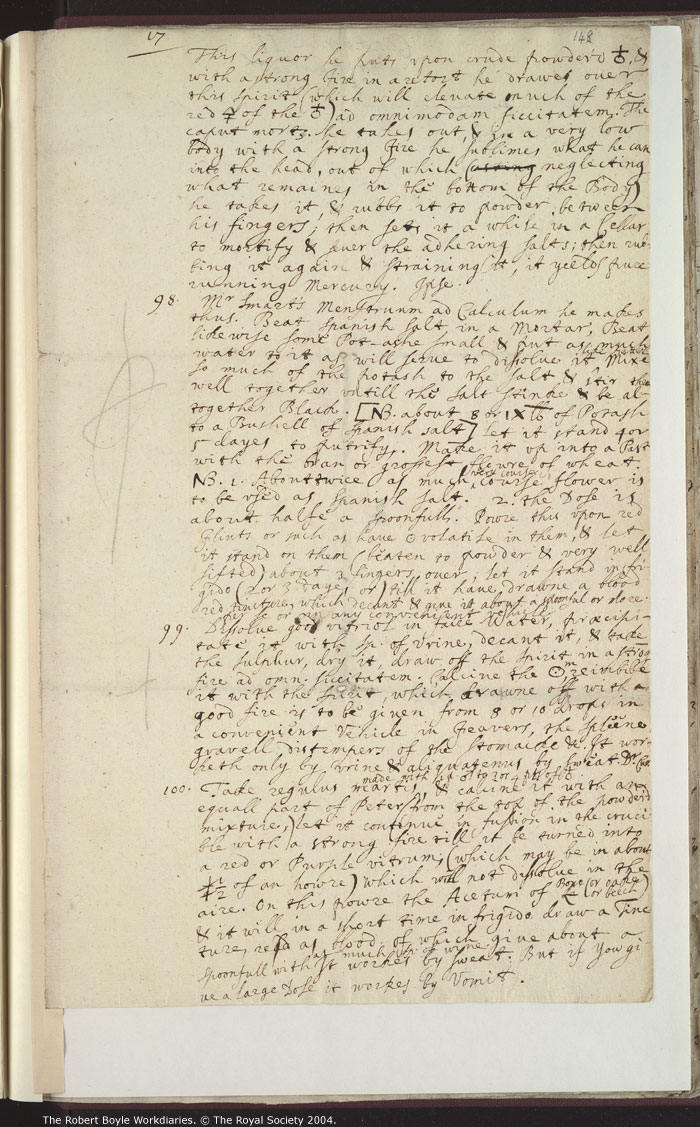 17
148
This liquor he puts upon crude powder'd ♁, &
with a strong fire in a retort he drawes over
this spirit (which will elevate much of the
red ☿ of the ♁) ad omnimodam siccitatem. The
caput mort: he takes out & in a very low
body with a strong fire he sublimes what he can
into the head, out of which ( neglecting
what remaines in the bottom of the Body)
he takes it & rubbs it to powder between
his fingers; then sets it a while in a Cellar
to mortify & sever the adhering salts; then rub-
bing it again & straining it, it yeelds pure
running Mercury. Ipse.
98. Mr Smarts Menstruum ad Calculum he makes
thus. Beat Spanish salt in a Mortar, Beat
likewise some Pot-ashe small & put as much
water to it as will serve to dissolve it Mixe
so much of the potash to the salt & stir them
well together untill the salt stinke & be al-
together Black. [NB. about 8 or IX lb of Potash
to a Bushell of Spanish salt] Let it stand for
5 dayes to putrify. Make it up into a Past
with the bran or grossest flowre of wheat.
NB. 1. About twice as much course flower is
to be used as Spanish salt. 2. the Dose is
about halfe a spoonfull. Powre this upon red
Flints or such as have volatile in them, & let
it stand on them (beaten to powder & very well
sifted) about 3 fingers over, let it stand in fri-
gido (2 or 3 dayes or) till it have drawne a blood
red tincture, which decant & give it about a spoonful or more
in any convenient vehicle
99. Dissolve good vitriol in faire Water, præcipi-
tate it with sp. of Urine, decant it, & take
the sulphur, dry it, draw off the spirit in a strong
fire ad omn. siccitatem. Calcine the reimbibe
it with the spirit, which drawne off with a
good fire is to be given from 8 or 10 drops in
a convenient vehicle in Feavers, the spleene
gravell, distempers of the stomacke &c. It wor-
keth only by urine & aliquatenus by sweat. Dr
100. Take regulus martis, & calcine it with an
made with
equall part of Peter from the top of the powderd
mixture,) let it continue in fusion in the cruci-
ble with a strong fire till it be turned into
a red or Purple vitrum, (which may be in about
½ of an howre) which will not dissolve in the
aire. On this powre the Acetum of Boxe (or oake
or beech)
& it will in a short time in frigido draw a Tinc
ture, red as blood, of which give about a
spoonfull with as much sp. of wine
It workes by sweat. But if you gi
ve a large Dose it workes by Vomit.
The Robert Boyle Workdiaries. © The Royal Society 2004.